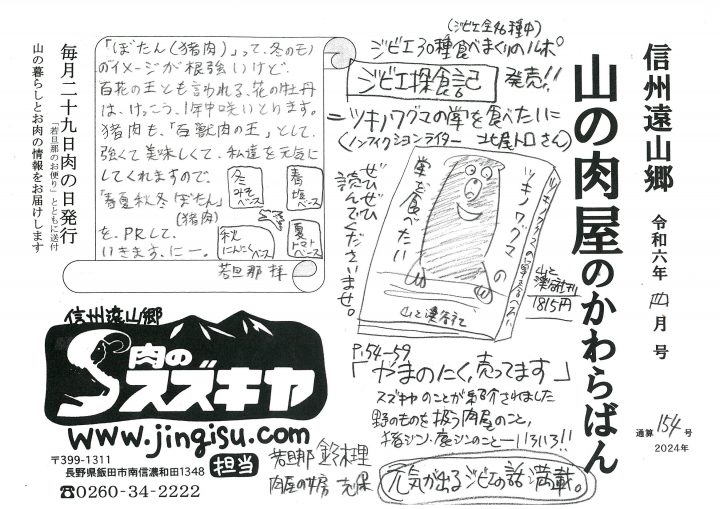 信州遠山郷
山の肉屋のかわらばん
令和六年 四月 号
通算 154 号
2024年
(ジビエ全46種中)
ジビエ30種食べまくりのルポ
ジビエ探食記 発売!!
=ツキノワグマの掌を食べたいに
(ノンフィクションライター 北尾トロさん)
ツキノワグマの
掌を食べたい
山と溪谷社
山と溪谷社刊
1815円
ぜひぜひ
読んでくださいませ。
P.54-59
「やまのにく、売ってます」
スズキヤのことが紹介されました
野のものを扱う肉屋のこと、
猪ジン、鹿ジンのことーいろいろ!!
元気が出るジビエの話満載。
「ぼたん(猪肉)」って、冬のモノ
のイメージが根強いけど、
百花の王とも言われる、花の牡丹
は、けっこう、1年中咲いとります。
猪肉も、「百獣肉の王」として、
強くて美味しくて、私達を元気に
してくれますので、
「春夏秋冬ぼたん」
(猪肉)
を、PRして、
いきます、にー。
冬みそベース
春塩ベース
秋にんにくベース
夏トマトベース
若旦那 拝
毎月二十九日肉の日発行
「若旦那のお便り」とともに送付
山の暮らしとお肉の情報をお届けします
信州遠山郷
肉の
スズキヤ
www.jingisu.com
〒399-1311
長野県飯田市南信濃和田1348
☎0260-34-2222
担当
若旦那 鈴木理
肉屋の女房